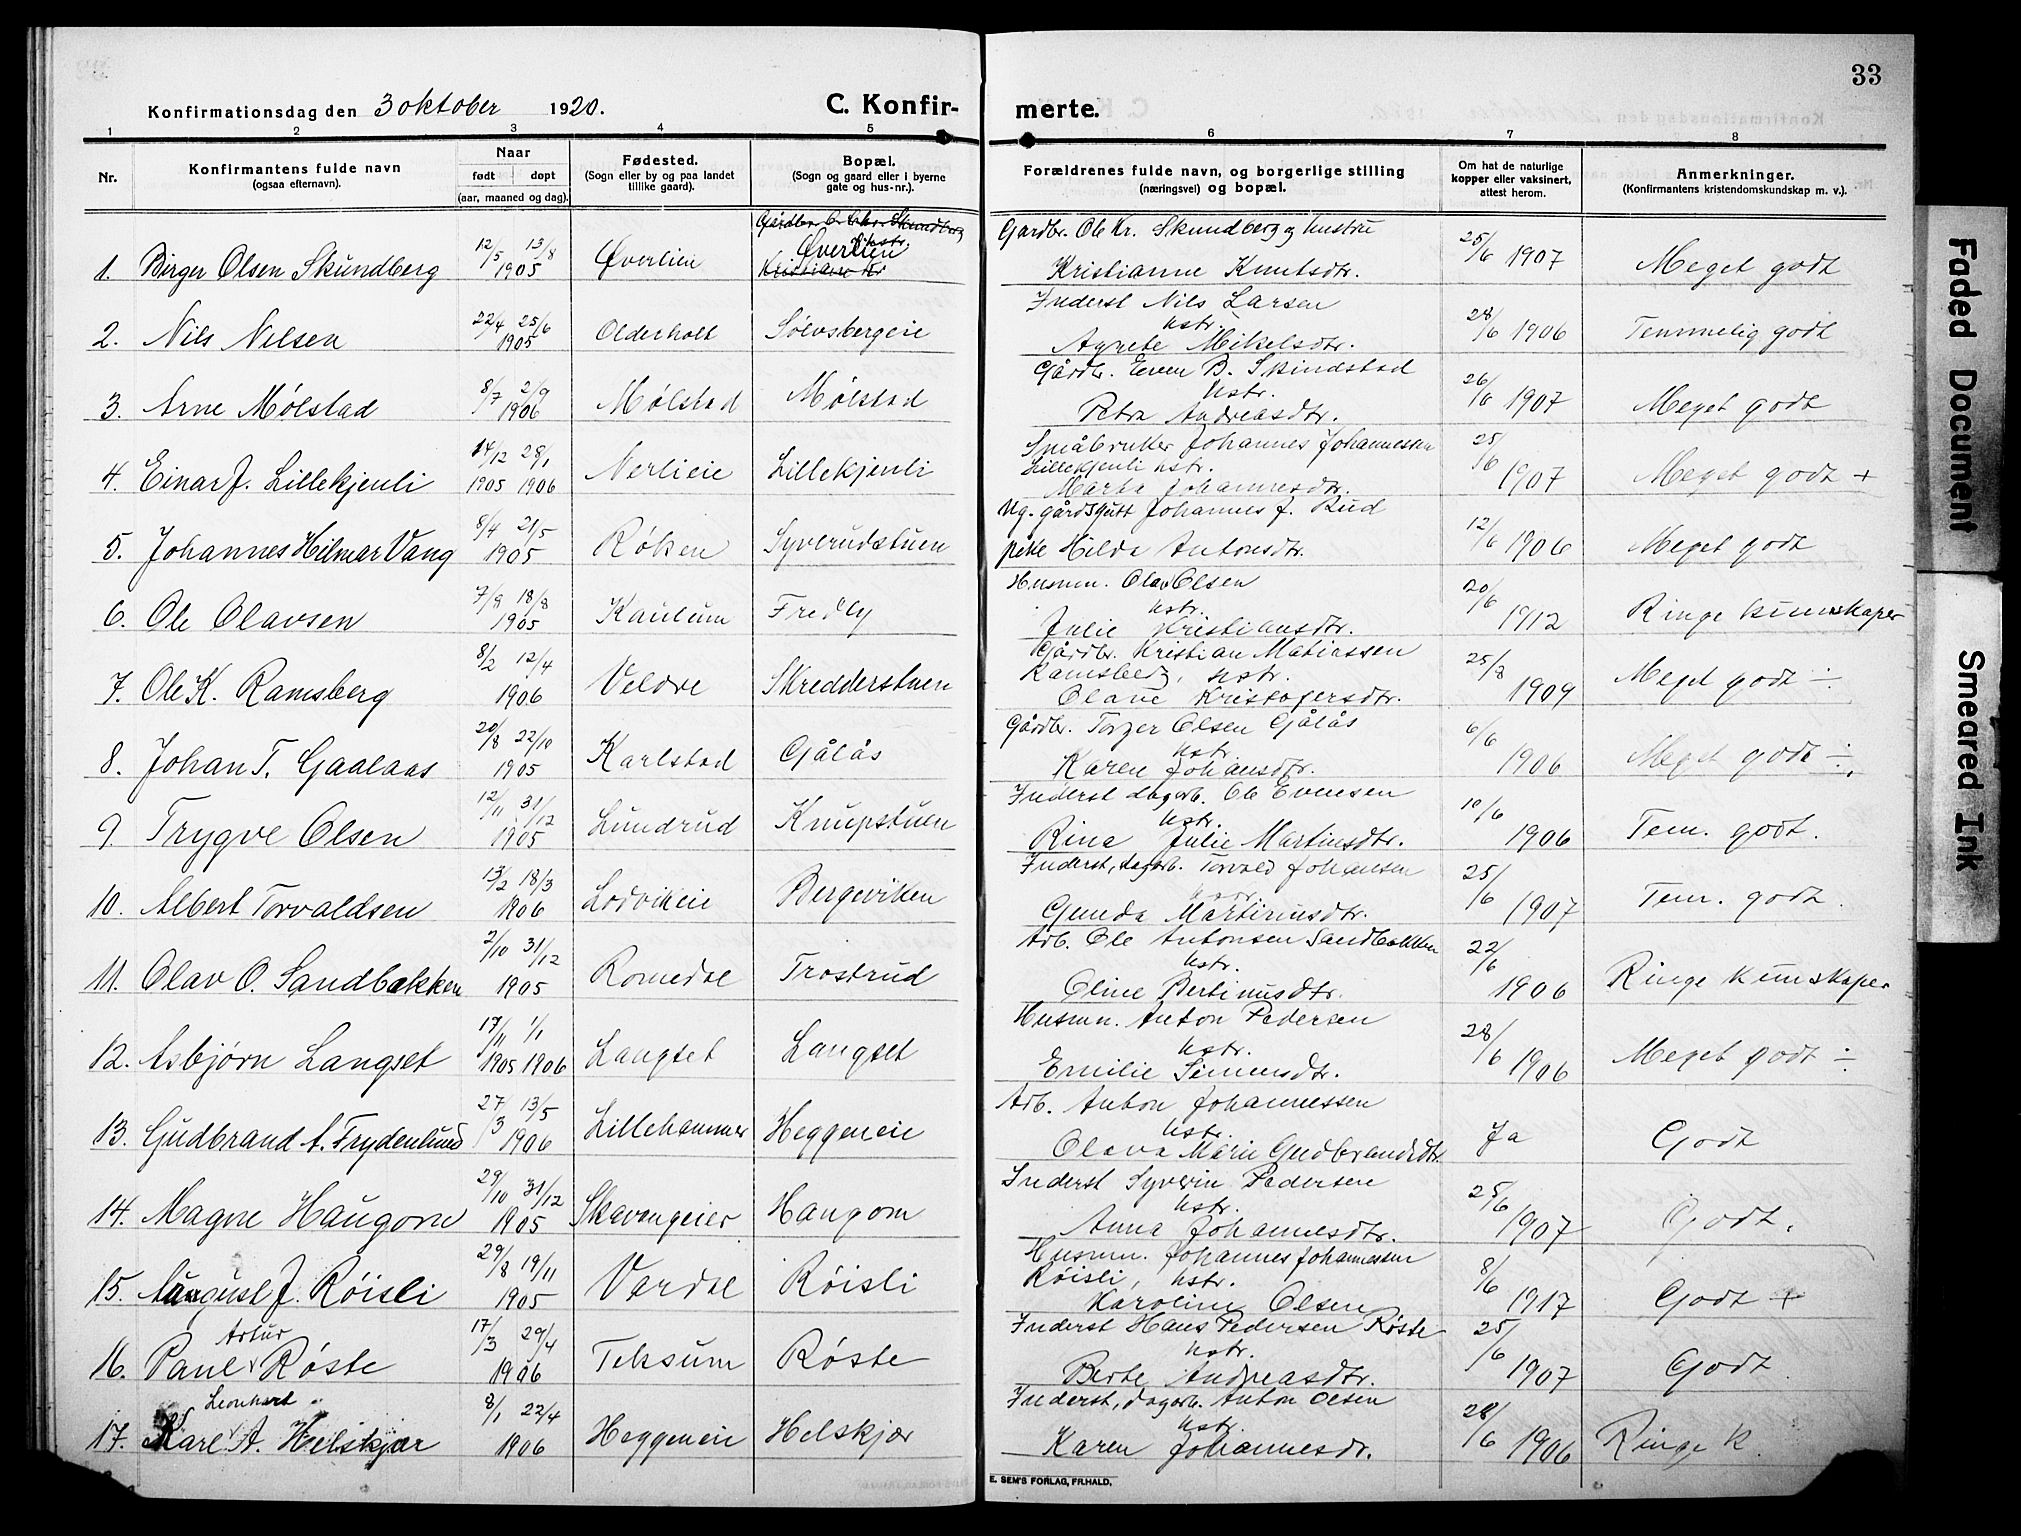 33
Konfirmationsdag den 3 oktober 1920.
C. Konfir-
merte.
1 2 3 4 5 6 7 8
Nr.
Konfirmantens fulde navn
(ogsaa efternavn).
Naar
født døpt
(aar, maaned og dag).
Fødested.
(Sogn eller by og paa landet
tillike gaard).
Bopæl.
(Sogn og gaard eller i byerne
gate og hus-nr.).
Forældrenes fulde navn, og borgerlige stilling
(næringsvei) og bopæl.
Om hat de naturlige
kopper eller vaksinert,
attest herom.
Anmerkninger.
(Konfirmantens kristendomskundskap m. v.).
Gardbr. Ole Kr. Skundberg og hustru
1. Birger Olsen Skundberg 12/5 13/8 1905 Øverlien Øverlien Kristianne Knutsdtr. 25/6 1907 Meget godt
Inderst Nils Larsen
hstr.
2. Nils Nilsen 22/4 25/6 1905 Olderholt Sølvsbergeie Agnete Mikelsdtr. 28/6 1906 Temmelig godt
Gårdbr. Even B. Skindstad
hstr.
3. Arne Mølstad 8/7 2/9 1906 Mølstad Mølstad Petra Andreasdtr. 26/6 1907 Meget godt
Småbruker Johannes Johannessen
Lillekjenli hstr.
4. Einar J. Lillekjenli 14/12 1905 28/1 1906 Nerlieie Lillekjenli Marta Johannesdtr. 25/6 1907 Meget godt +
Ug. gårdsgutt Johannes J. Rud
5. Johannes Hilmar Vang 8/4 21/5 1905 Røken Syverudstuen pike Hilda Antonsdtr. 12/6 1906 Meget godt
Husmn. Olav Olsen
hstr.
6. Ole Olavsen 7/9 18/8 1905 Kaulum Fredly Julie Kristiansdtr. 20/6 1912 Ringe kunnskaper
Gårdbr. Kristian Matiassen
Ramsberg, hstr.
7. Ole K. Ramsberg 8/2 12/4 1906 Veldre Skredderstuen Olave Kristofersdtr. 25/8 1909 Meget godt ÷
Gårdbr. Torger Olsen Gålås
hstr.
8. Johan T. Gaalaas 20/8 22/10 1905 Karlstad Gålås Karen Johansdtr. 6/6 1906 Meget godt ÷
Inderst dagarb. Ole Evensen
hstr.
9. Trygve Olsen 12/11 31/12 1905 Lundrud Knupstuen Rina Julie Martinsdtr. 10/6 1906 Tem. godt.
Inderst, dagarb. Torvald Johansen
10. Albert Torvaldsen 13/2 18/3 1906 Lodvikeie Bergeviken Gunda Martinusdtr. 25/6 1907 Tem. godt.
Arb. Ole Antonsen Sandbakken
hstr.
11. Olav O. Sandbakken 2/10 31/12 1905 Romedal Trostrud Oline Bertinusdtr. 22/6 1906 Ringe kunnskaper
Husmn. Anton Pedersen
hstr.
12. Asbjørn Langset 17/11 1905 1/1 1906 Langset Langset Emilie Simensdtr. 28/6 1906 Meget godt ÷
Arb. Anton Johannessen
hstr.
13. Gudbrand A. Frydenlund 27/3 13/5 1906 Lillehammer Heggeneie Olava Marie Gudbrandsdtr. Ja Godt
Inderst Syverin Pedersen
hstr.
14. Magne Haugom 29/10 31/12 1905 Skavangeier Haugom Anna Johannesdtr. 25/6 1907 Godt.
Husmn. Johannes Johannessen
Røisli, hstr.
15. August J. Røisli 29/8 19/11 1905 Vardal Røisli Karoline Olsen 8/6 1917 Godt +
Inderst Hans Pedersen Røste
hstr.
Artur
16. Paul Røste 17/3 29/4 1906 Teksum Røste Berte Andreasdtr. 25/6 1907 Godt
Inderst, dagarb. Anton Olsen
hstr.
Leonhart
17. Karl A. Helskjær 8/1 22/4 1906 Heggeneie Helskjær Karen Johannesdtr. 28/6 1906 Ringe k.
E. SEM'S FORLAG, FR.HALD.
Faded Document
Smeared Ink